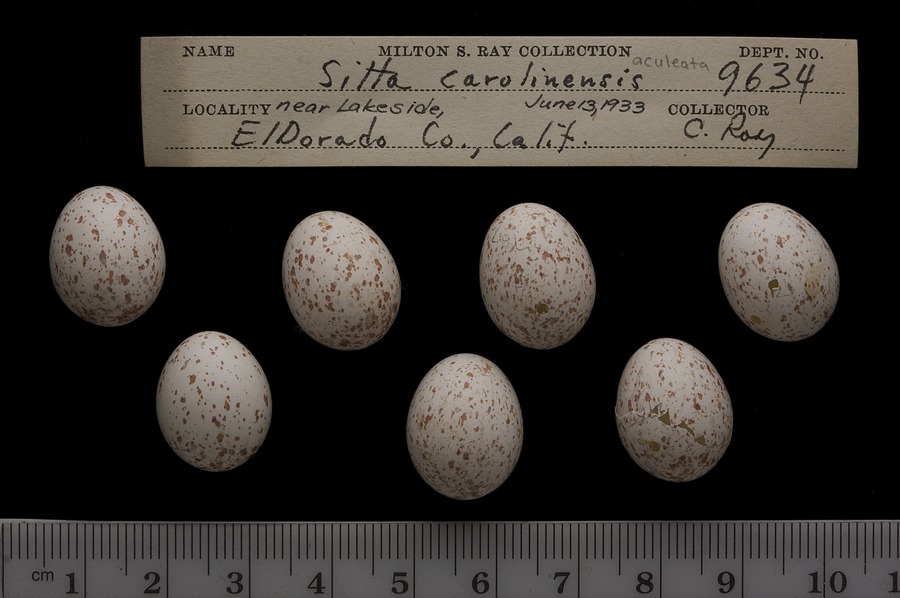 NAME MILTON S. RAY COLLECTION DEPT. NO.
Sitta carolinensis aculeata 9634
LOCALITY near Lakeside, June 13, 1933 COLLECTOR
El Dorado Co., Calif. C. Ray
cm 1 2 3 4 5 6 7 8 9 10 1